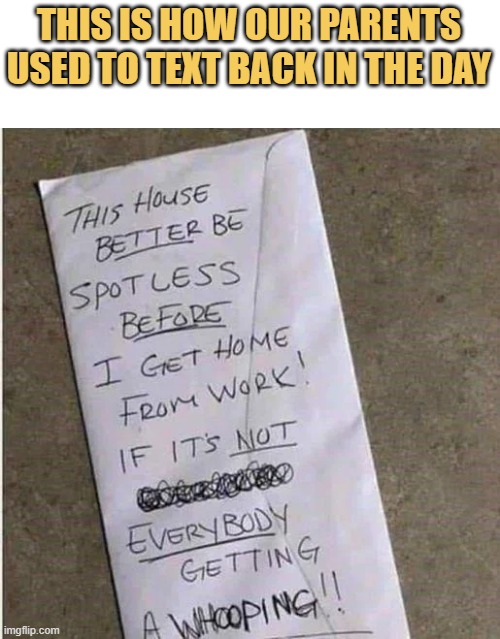 THIS IS HOW OUR PARENTS
USED TO TEXT BACK IN THE DAY
THIS HOUSE
BETTER BE
SPOTLESS
BEFORE
I GET HOME
FROM WORK!
IF IT'S NOT
EVERYBODY
GETTING
A WHOOPING!!
imgflip.com